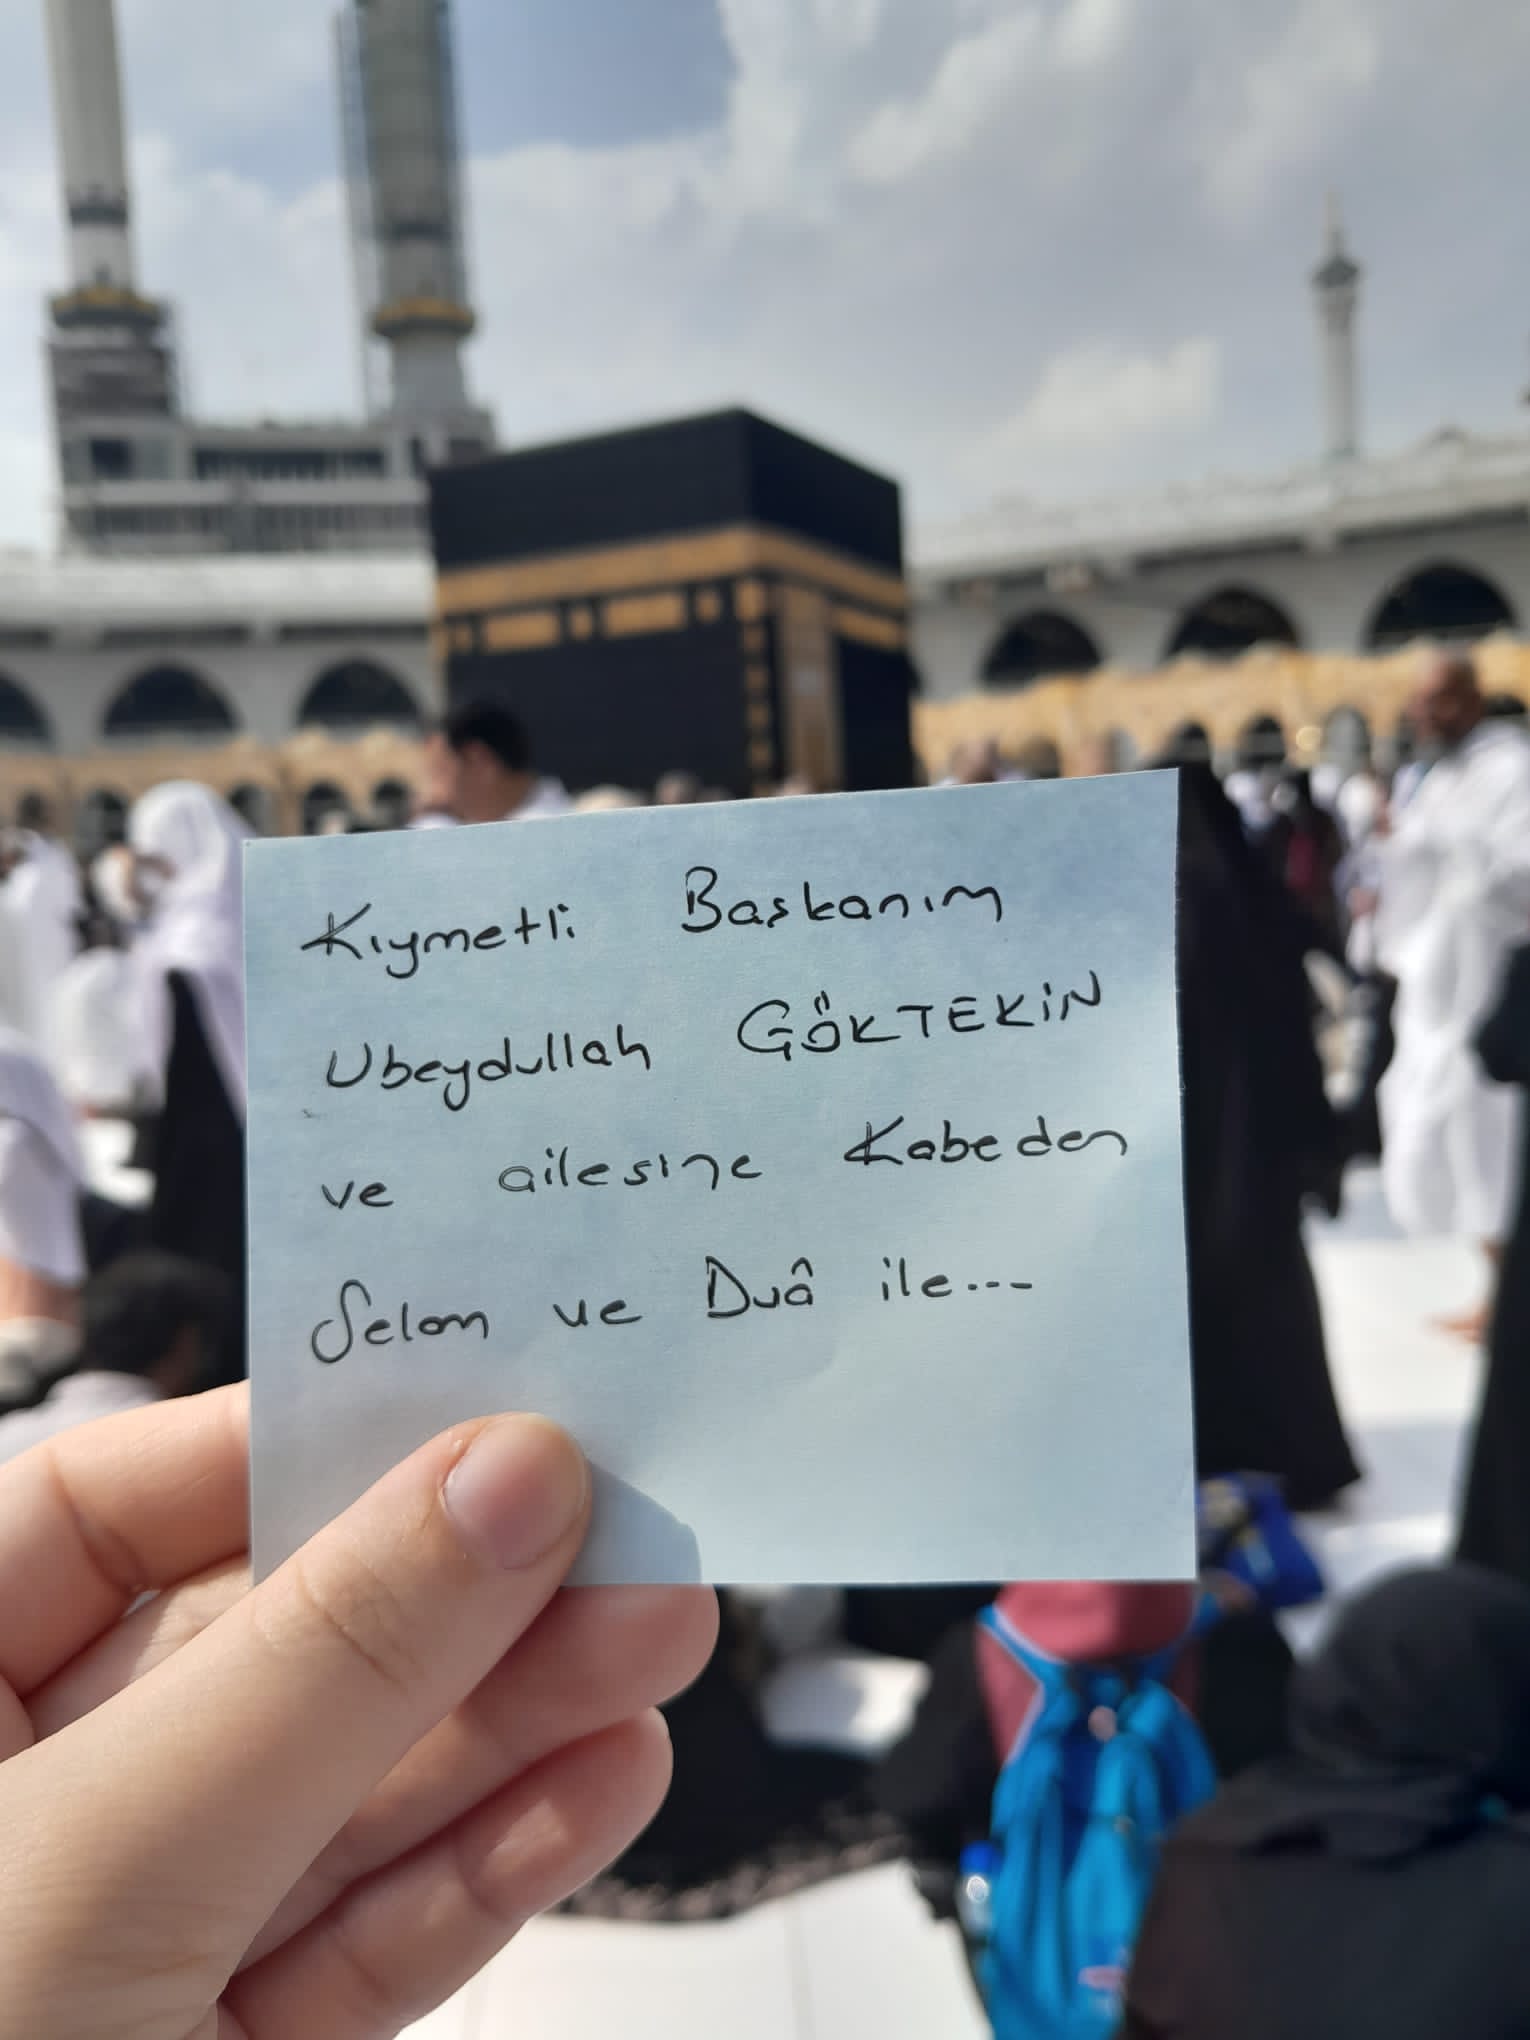 Kıymetli Başkanım
Ubeydullah GÖKTEKİN
ve ailesine Kabeden
Selam ve Duâ ile...